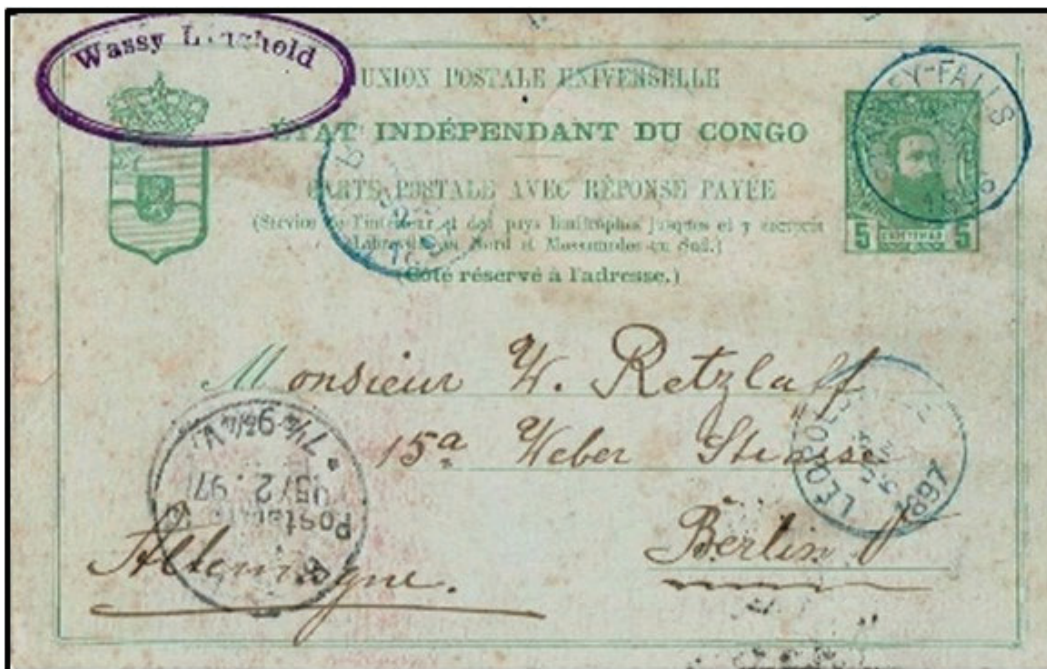 Wassy
UNION POSTALE UNIVERSELLE
ÉTAT INDÉPENDANT DU CONGO
CARTE POSTALE AVEC RÉPONSE PAYÉE
(Service de l'intérieur et des pays limitrophes jusques et y compris
Libreville au Nord et Mossamedes au Sud.)
(Côté réservé à l'adresse.)
5 CENTIMES 5
EY-FALLS
Monsieur W. Retzlaff
15a Weber Strasse
Berlin
Allemagne.
1897